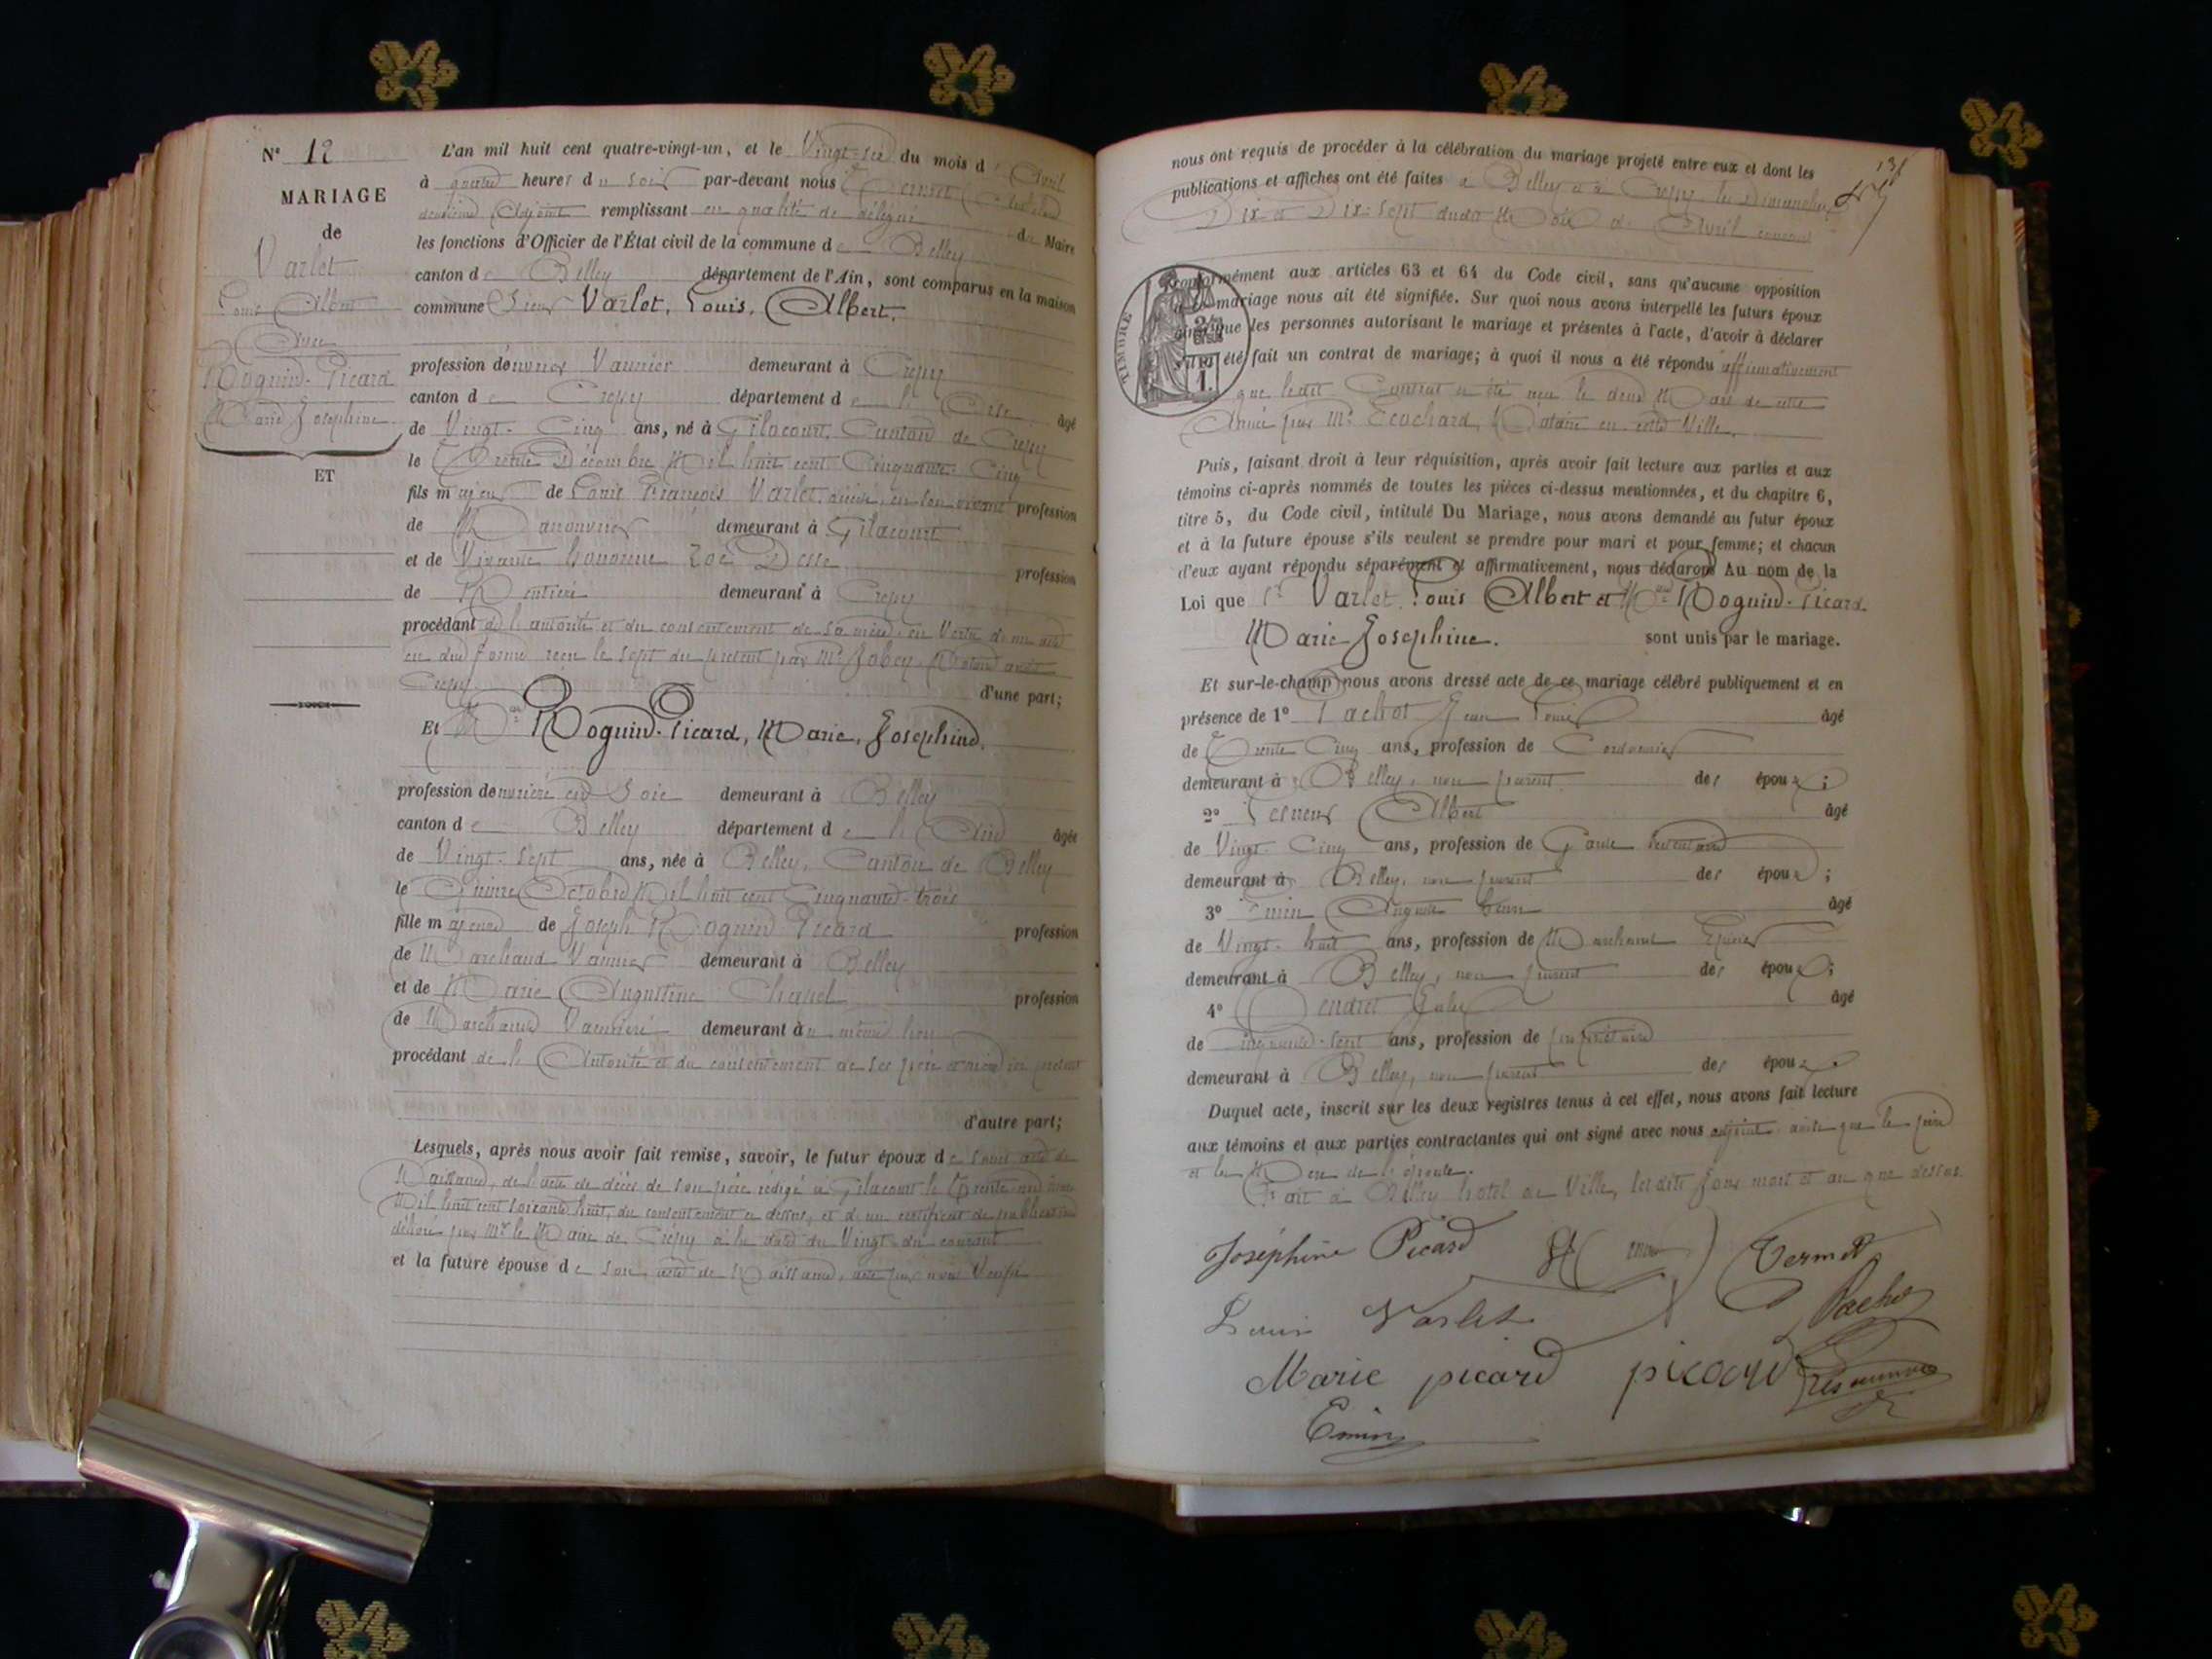 N° 12
MARIAGE
de
Varlet
Louis Albert
Avec
Moguin-Picard
Marie Josephine
ET
L'an mil huit cent quatre-vingt-un, et le Vingt-six du mois d'Avril
à quatre heures du soir par-devant nous
deuxième Adjoint remplissant en qualité de délégué du Maire
les fonctions d'Officier de l'État civil de la commune de Belley
canton de Belley département de l'Ain, sont comparus en la maison
commune Sieur Varlet, Louis, Albert.
profession d'ouvrier Vannier demeurant à Crépy
canton de Crépy département de l'Oise âgé
de Vingt-Cinq ans, né à Gilocourt, Canton de Crépy
le Trente Décembre Mil huit cent Cinquante-Cinq
fils majeur de Louis François Varlet, décédé, en son vivant profession
de Manouvrier demeurant à Gilocourt
et de Vivante honorine Zoé Desse profession
de Rentière demeurant à Crépy
procédant de l'autorité et du consentement de sa mère, en Vertu d'un acte
en due forme reçu le sept du présent par Me Jobey, Notaire audit
Crépy d'une part;
Et Dlle Moguin-Picard, Marie, Josephine.
profession d'ouvrière en Soie demeurant à Belley
canton de Belley département de l'Ain âgée
de Vingt-sept ans, née à Belley, Canton de Belley
le Quinze Octobre Mil huit cent Cinquante-trois
fille majeure de Joseph Moguin Picard profession
de Marchand Vannier demeurant à Belley
et de Marie Augustine Chapel profession
de Marchande Vannière demeurant au même lieu
procédant de l'Autorité et du consentement de ses père et mère ici présents
d'autre part;
Lesquels, après nous avoir fait remise, savoir, le futur époux de son acte de
Naissance, de l'acte de décès de son père rédigé à Gilocourt le Trente
Mil huit cent soixante huit, du consentement ci dessus, et d'un certificat de publication
délivré par Mr le Maire de Crépy à la date du Vingt du courant
et la future épouse de son acte de Naissance, acte par nous Vérifié
nous ont requis de procéder à la célébration du mariage projeté entre eux et dont les
publications et affiches ont été faites à Belley et à Crépy les Dimanches
Dix et Dix-Sept dudit Mois d'Avril courant
conformément aux articles 63 et 64 du Code civil, sans qu'aucune opposition
mariage nous ait été signifiée. Sur quoi nous avons interpellé les futurs époux
ainsi que les personnes autorisant le mariage et présentes à l'acte, d'avoir à déclarer
s'il a été fait un contrat de mariage; à quoi il nous a été répondu affirmativement
que ledit Contrat a été reçu le deux Mars de cette
Année par Me Ecochard, Notaire en cette Ville.
TIMBRE
Puis, faisant droit à leur réquisition, après avoir fait lecture aux parties et aux
témoins ci-après nommés de toutes les pièces ci-dessus mentionnées, et du chapitre 6,
titre 5, du Code civil, intitulé Du Mariage, nous avons demandé au futur époux
et à la future épouse s'ils veulent se prendre pour mari et pour femme; et chacun
d'eux ayant répondu séparément et affirmativement, nous déclarons Au nom de la
Loi que Sr Varlet, Louis Albert et Dlle Moguin-Picard.
Marie-Josephine. sont unis par le mariage.
Et sur-le-champ nous avons dressé acte de ce mariage célébré publiquement et en
présence de 1° Pachot Jean Louis âgé
de Trente Cinq ans, profession de Cordonnier
demeurant à Belley, non parent des époux;
2° Albert âgé
de Vingt-Cinq ans, profession de
demeurant à Belley, non parent des époux;
3° Emin Auguste âgé
de Vingt-huit ans, profession de Marchand Epicier
demeurant à Belley, non parent des époux;
4° Jules âgé
de Cinquante-sept ans, profession de propriétaire
demeurant à Belley, non parent des époux.
Duquel acte, inscrit sur les deux registres tenus à cet effet, nous avons fait lecture
aux témoins et aux parties contractantes qui ont signé avec nous adjoint ainsi que le père
et la Mère de l'épouse.
Fait à Belley hotel de Ville, lesdits jour mois et an que dessus.
Joséphine Picard
Vermet
Louis Varlet
Pachot
Marie picard picard
Emin